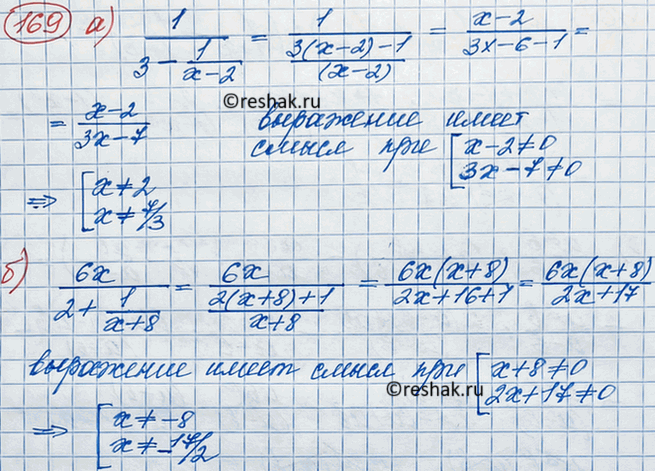 169 а) 1/(3 - 1/(x-2)) = 1/((3(x-2)-1)/(x-2)) = (x-2)/(3x-6-1) =
©reshak.ru
= (x-2)/(3x-7) выражение имеет
смысл при [x-2≠0
3x-7≠0
⇒ [x≠2
x≠7/3
б) 6x/(2+1/(x+8)) = 6x/((2(x+8)+1)/(x+8)) = 6x(x+8)/(2x+16+1) = 6x(x+8)/(2x+17)
выражение имеет смысл при [x+8≠0
©reshak.ru
2x+17≠0
⇒ [x≠-8
x≠-17/2